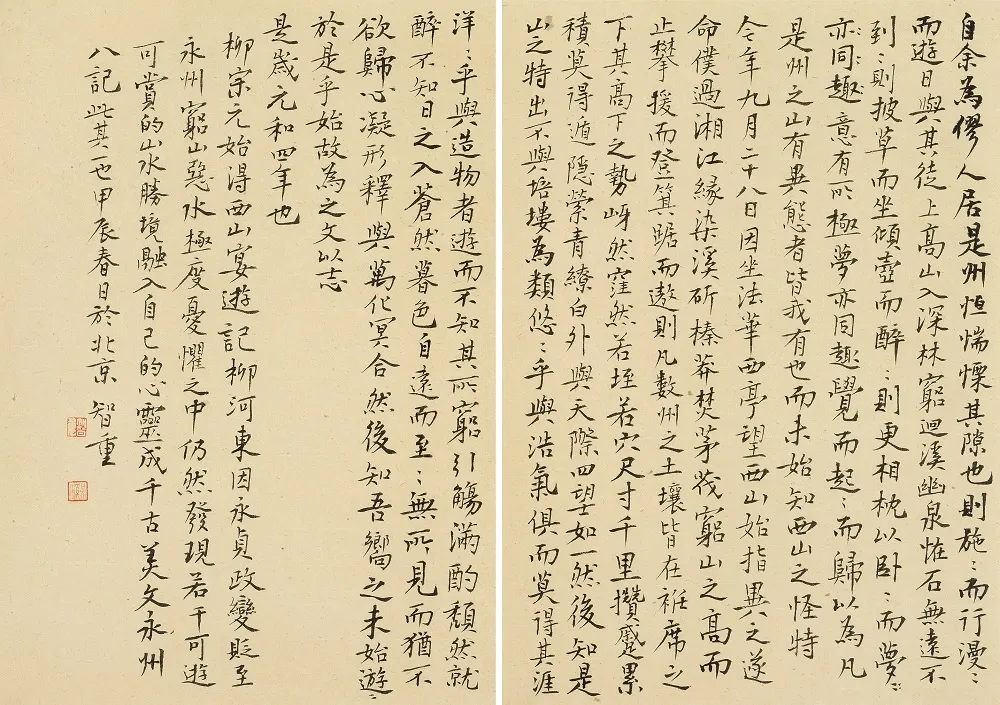 自余為僇人居是州恒惴慄其隙也則施〻而行漫〻
而遊日與其徒上高山入深林窮迴溪幽泉怪石無遠不
到〻則披草而坐傾壺而醉〻則更相枕以卧〻而夢〻
亦同趣意有所極夢亦同趣覺而起〻而歸以為凡
是州之山有異態者皆我有也而未始知西山之怪特
今年九月二十八日因坐法華西亭望西山始指異之遂
命僕過湘江緣染溪斫榛莽焚茅茷窮山之高而
止攀援而登箕踞而遨則凡數州之土壤皆在袵席之
下其高下之勢岈然窪然若垤若穴尺寸千里攢蹙累
積莫得遁隱縈青繚白外與天際四望如一然後知是
山之特出不與培塿為類悠〻乎與浩氣俱而莫得其涯
洋〻乎與造物者遊而不知其所窮引觴滿酌頹然就
醉不知日之入蒼然暮色自遠而至〻無所見而猶不
欲歸心凝形釋與萬化冥合然後知吾嚮之未始遊〻
於是乎始故為之文以志
是歲元和四年也
柳宗元始得西山宴遊記柳河東因永貞政變貶至
永州窮山惡水極度憂懼之中仍然發現若干可遊
可賞的山水勝境融入自己的心靈成千古美文永州
八記此其一也甲辰春日於北京 智重